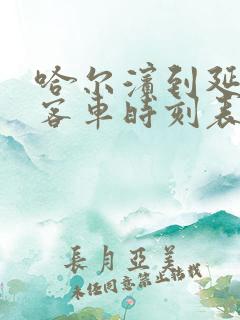 哈尔滨到延
客车时刻表
長月亞美
未经同意禁止转载